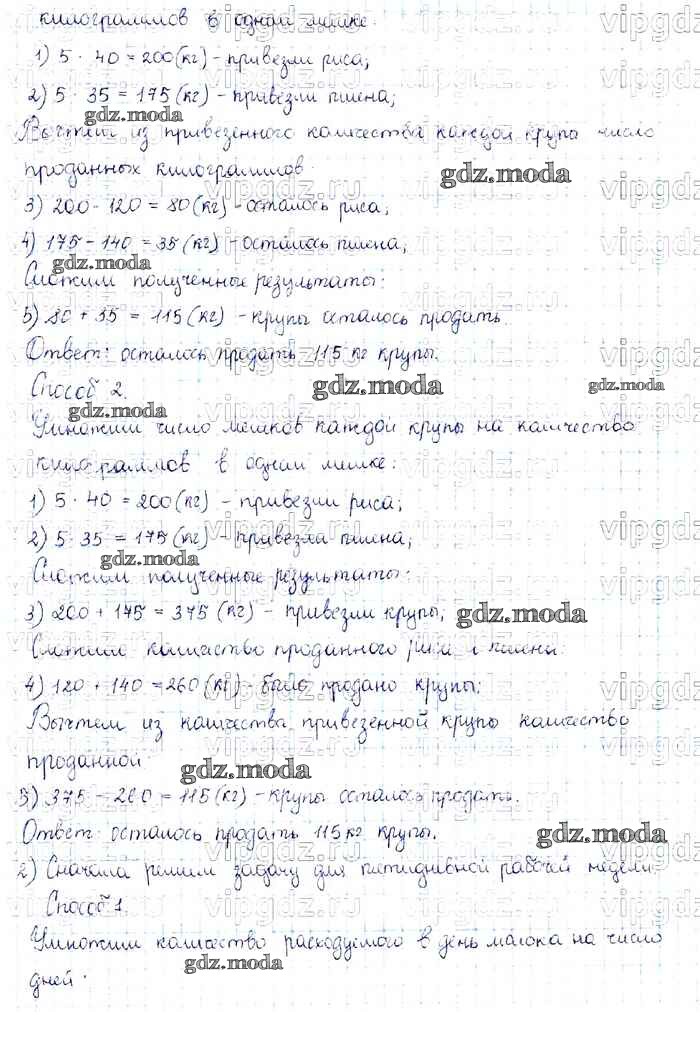 килограммов в одном мешке.
1) 5 · 40 = 200 (кг) - привезли риса;
2) 5 · 35 = 175 (кг) - привезли пшена;
Вычтем из привезенного количества каждой крупы число
проданных килограммов.
3) 200 - 120 = 80 (кг) - осталось риса;
4) 175 - 140 = 35 (кг) - осталось пшена;
Сложим полученные результаты:
5) 80 + 35 = 115 (кг) - крупы осталось продать.
Ответ: осталось продать 115 кг крупы.
Способ 2.
Умножим число мешков каждой крупы на количество
килограммов в одном мешке:
1) 5 · 40 = 200 (кг) - привезли риса;
2) 5 · 35 = 175 (кг) - привезли пшена;
Сложим полученные результаты:
3) 200 + 175 = 375 (кг) - привезли крупы;
Сложим количество проданного риса и пшена:
4) 120 + 140 = 260 (кг) - было продано крупы;
Вычтем из количества привезенной крупы количество
проданной
5) 375 - 260 = 115 (кг) - крупы осталось продать.
Ответ: осталось продать 115 кг крупы.
2) Сначала решим задачу для пятидневной рабочей недели.
Способ 1.
Умножим количество расходуемого в день молока на число
дней.
vipgdz.ru
gdz.moda